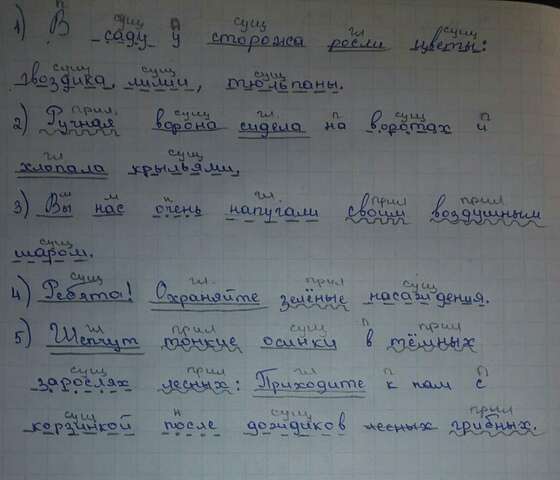 п сущ п сущ гл сущ
1) В саду у сторожа росли цветы:
сущ сущ сущ
гвоздика, лилии, тюльпаны.
прил. сущ гл. п сущ п
2) Ручная ворона сидела на воротах и
гл сущ
хлопала крыльями.
м м н гл. прил прил
3) Вы нас очень напугали своим воздушным
сущ
шаром.
сущ гл. прил сущ
4) Ребята! Охраняйте зелёные насаждения.
гл прил сущ п прил
5) Шепчут тонкие осинки в тёмных
сущ прил гл п п
зарослях лесных: Приходите к нам с
сущ н сущ прил
корзинкой после дождиков лесных грибных.